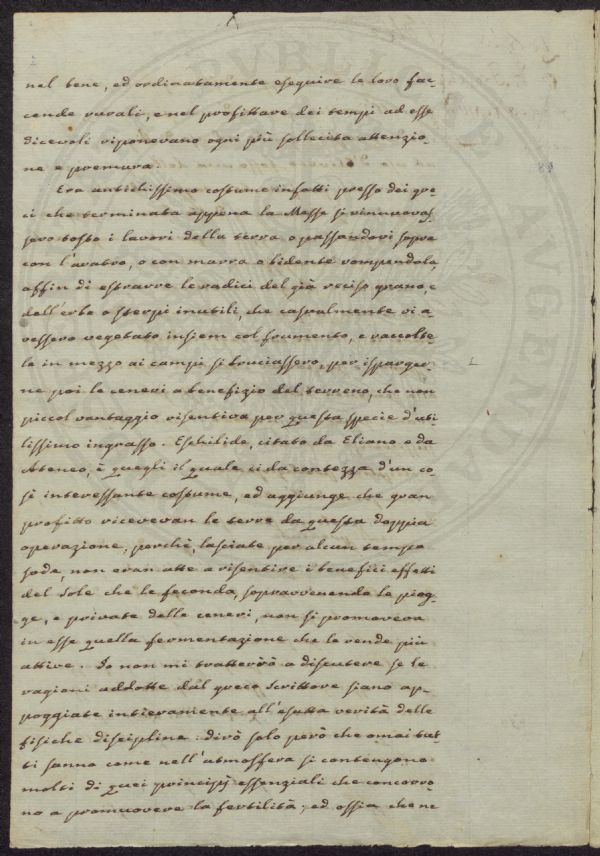 nel bene, ed ordinatamente eseguire le loro fac-
cende rurali, e nel profittare dei tempi ad esse
dicevoli riponevano ogni più sollecita attenzio-
ne e premura.
Era antichissimo costume infatti presso dei gre-
ci che terminata appena la Messe si rinnuovas-
sero tosto i lavori della terra o passandovi sopra
con l'aratro, o con marra o bidente rompendola,
affin di estrarre le radici del già reciso grano, e
dell'erbe o sterpi inutili, che casualmente vi a-
vessero vegetato insiem col frumento, e raccolte-
le in mezzo ai campi si bruciassero, per isparger-
ne poi le ceneri a benefizio del terreno, che non
piccol vantaggio risentiva per questa specie d'uti-
lissimo ingrasso. Eschilide, citato da Eliano e da
Ateneo, è quegli il quale ci da contezza d'un co-
sì interessante costume, ed aggiunge che gran
profitto ricevevan le terre da questa doppia
operazione, perchè, lasciate per alcun tempo
sode, non eran atte a risentire i benefici effetti
del Sole che le feconda, sopravvenendo le piog-
ge, e private delle ceneri, non si promoveva
in esse quella fermentazione che le rende più
attive. Io non mi tratterrò a discutere se le
ragioni addotte dal greco Scrittore siano ap-
poggiate intieramente all'esatta verità delle
fisiche discipline: dirò solo però che omai tut-
ti sanno come nell'atmosfera si contengono
molti di quei principj essenziali che concorro-
no a promuovere la fertilità; ed ossia che ne